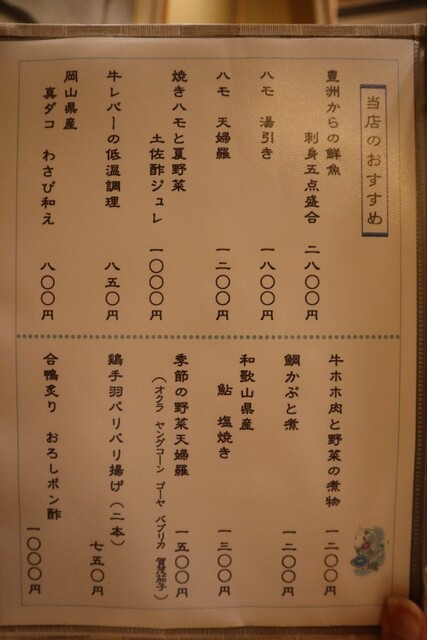 当店のおすすめ
豊洲からの鮮魚
刺身五点盛合 二八〇〇円
ハモ 湯引き 一八〇〇円
ハモ 天婦羅 一二〇〇円
焼きハモと夏野菜
土佐酢ジュレ 一〇〇〇円
牛レバーの低温調理 八五〇円
岡山県産
真ダコ わさび和え 八〇〇円
牛ホホ肉と野菜の煮物 一二〇〇円
鯛かぶと煮 一二〇〇円
和歌山県産
鮎 塩焼き 一三〇〇円
季節の野菜天婦羅 一五〇〇円
(オクラ ヤングコーン ゴーヤ パプリカ 賀茂茄子)
鶏手羽パリパリ揚げ(二本) 七五〇円
合鴨炙り おろしポン酢 一〇〇〇円